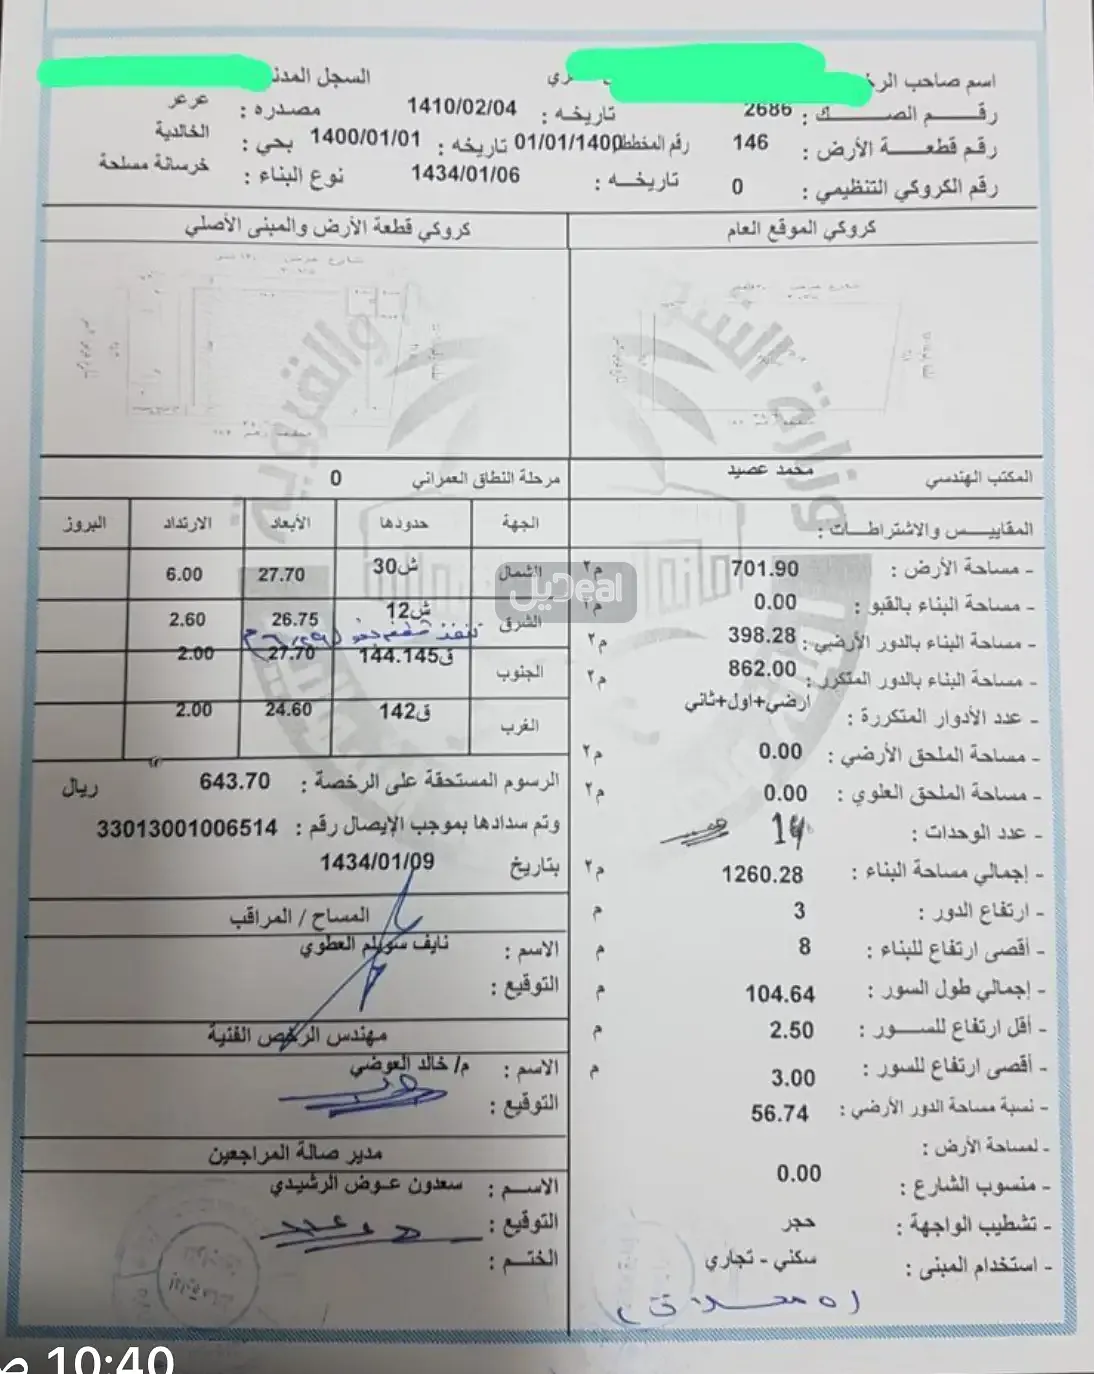 اسم صاحب الرخ
السجل المدن
رقم الصك : 2686 تاريخه : 1410/02/04 مصدره : عرعر
رقم قطعة الأرض : 146 رقم المخطط 01/01/1400 تاريخه : 1400/01/01 بحي : الخالدية
رقم الكروكي التنظيمي : 0 تاريخه : 1434/01/06 نوع البناء : خرسانة مسلحة
كروكي الموقع العام
كروكي قطعة الأرض والمبنى الأصلي
وزارة الشؤ
والقروية
المكتب الهندسي محمد عصيد
المقاييس والاشتراطات :
- مساحة الأرض : 701.90 م٢
- مساحة البناء بالقبو : 0.00 م٢
- مساحة البناء بالدور الأرضي : 398.28 م٢
- مساحة البناء بالدور المتكرر : 862.00 م٢
- عدد الأدوار المتكررة : ارضي+اول+ثاني
- مساحة الملحق الأرضي : 0.00 م٢
- مساحة الملحق العلوي : 0.00 م٢
- عدد الوحدات : 14
- إجمالي مساحة البناء : 1260.28 م٢
- ارتفاع الدور : 3 م
- أقصى ارتفاع للبناء : 8 م
- إجمالي طول السور : 104.64 م
- أقل ارتفاع للسور : 2.50 م
- أقصى ارتفاع للسور : 3.00 م
- نسبة مساحة الدور الأرضي : 56.74
- لمساحة الأرض :
- منسوب الشارع : 0.00
- تشطيب الواجهة : حجر
- استخدام المبنى : سكني - تجاري
(٥ محلات)
مرحلة النطاق العمراني 0
الجهة حدودها الأبعاد الارتداد البروز
الشمال ش30 27.70 6.00
الشرق ش12 26.75 2.60
الجنوب ق144.145 27.70 2.00
الغرب ق142 24.60 2.00
الرسوم المستحقة على الرخصة : 643.70 ريال
وتم سدادها بموجب الإيصال رقم : 33013001006514
بتاريخ 1434/01/09
المساح / المراقب
الاسم : نايف سويلم العطوي
التوقيع :
مهندس الرخص الفنية
الاسم : م/ خالد العوضي
التوقيع :
مدير صالة المراجعين
الاسم : سعدون عوض الرشيدي
التوقيع :
الختم :
ديل Deal
10:40 ص